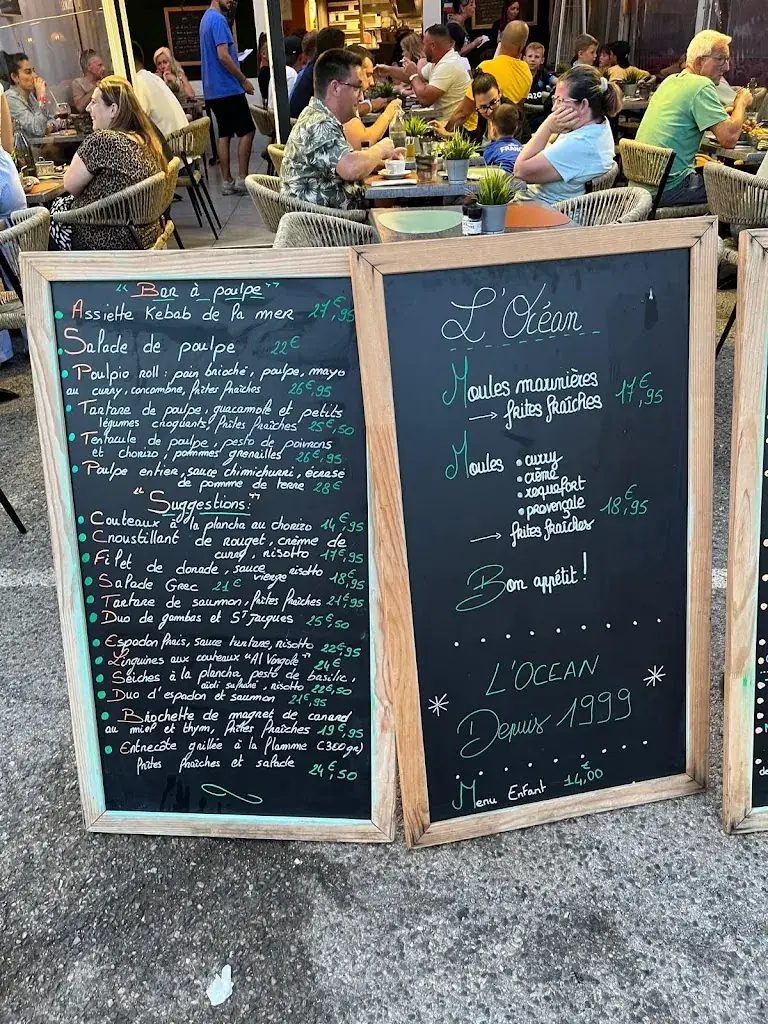 "Bar à poulpe"
Assiette Kebab de la mer 27€,95
Salade de poulpe 22€
Poulpio roll : pain brioché, poulpe, mayo
au curry, concombre, frites fraîches 26€,95
Tartare de poulpe, guacamole et petits
légumes croquants, frites fraîches 25€,50
Tentacule de poulpe, pesto de poivrons
et chorizo, pommes grenailles 26€,95
Poulpe entier, sauce chimichurri, écrasé
de pomme de terre 28€
"Suggestions:"
Couteaux à la plancha au chorizo 14€,95
Croustillant de rouget, crème de
curry, risotto 17€,95
Filet de dorade, sauce vierge risotto 18€,95
Salade Grec 21€
Tartare de saumon, frites fraîches 21€,95
Duo de gambas et St Jacques 25€,50
Espadon frais, sauce tartare, risotto 22€,95
Linguines aux couteaux "Al Vongole" 24€
Seiches à la plancha, pesto de basilic,
aïoli safrané, risotto 22€,50
Duo d'espadon et saumon 21€,95
Brochette de magret de canard
au miel et thym, frites fraîches 19€,95
Entrecôte grillée à la flamme (300gr)
frites fraîches et salade 24€,50
L'Océan
Moules marinières 17€,95
→ frites fraîches
Moules • curry
• crème
• roquefort
• provençale 18€,95
→ frites fraîches
Bon appétit !
L'OCEAN
Depuis 1999
Menu Enfant 14€,00